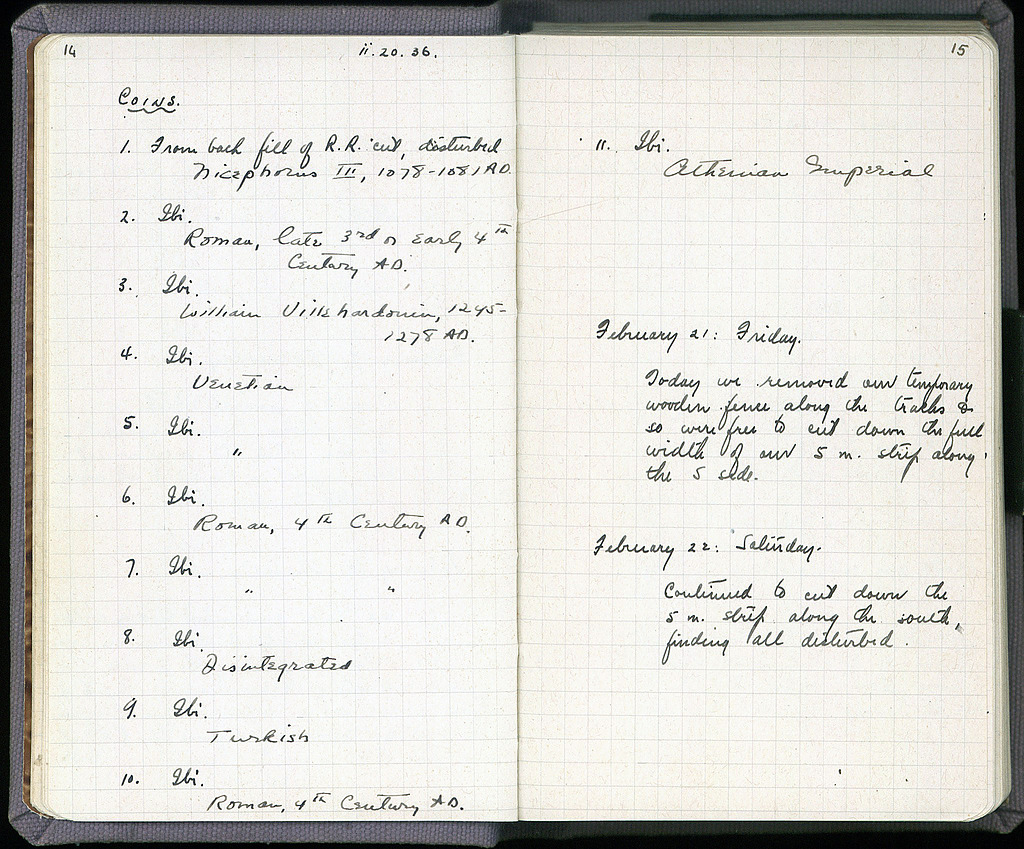 14
ii. 20. 36.
COINS.
1. From back fill of R.R. cut, disturbed
Nicephorus III, 1078-1081 AD.
2. Ibi.
Roman, late 3rd or early 4th
Century AD.
3. Ibi.
William Villehardouin, 1245-
1278 AD.
4. Ibi.
Venetian
5. Ibi.
"
6. Ibi.
Roman, 4th Century AD.
7. Ibi.
" "
8. Ibi.
Disintegrated
9. Ibi.
Turkish
10. Ibi.
Roman, 4th Century AD.
15
11. Ibi.
Athenian Imperial
February 21: Friday.
Today we removed our temporary
wooden fence along the tracks &
so were free to cut down the full
width of our 5 m. strip along
the S side.
February 22: Saturday.
Continued to cut down the
5 m. strip along the south,
finding all disturbed.